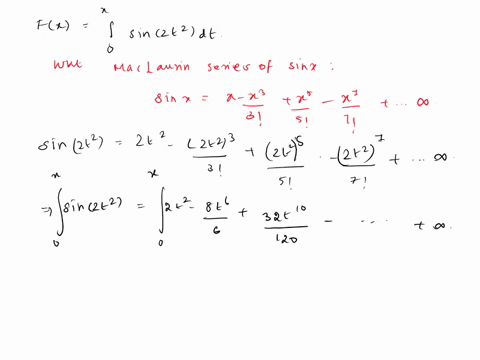 F(x) = ∫₀ˣ sin(2t²) dt.
WKT MacLaurin series of sinx :
sin x = x - x³/3! + x⁵/5! - x⁷/7! + ... ∞
sin(2t²) = 2t² - (2t²)³/3! + (2t²)⁵/5! - (2t²)⁷/7! + ... ∞
⇒ ∫₀ˣ sin(2t²) = ∫₀ˣ 2t² - 8t⁶/6 + 32t¹⁰/120 - ..... + ∞